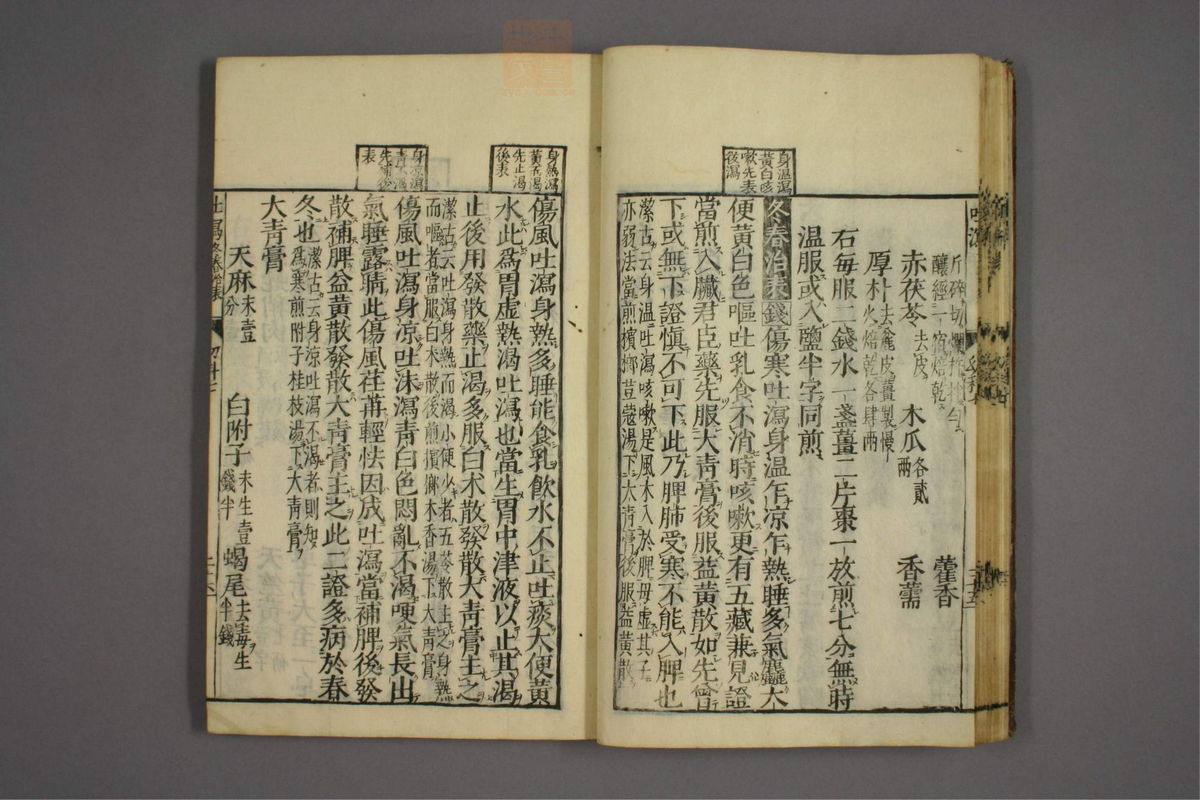 赤茯苓去皮 木瓜各貳兩 香薷
藿香
厚朴去麤皮薑製慢火焙乾各肆兩
右每服二錢水一盞薑二片棗一放煎七分無時
溫服或入鹽半字同煎
身溫瀉
黃白咳
嗽先表
後瀉
冬春治表錢傷寒吐瀉身溫乍凉乍熱睡多氣麤大
便黃白色嘔吐乳食不消時咳嗽更有五藏兼見證
當煎入臟君臣藥先服大青膏後服益黃散如先曾
下或無下證愼不可下此乃脾肺受寒不能入脾也
潔古云身溫吐瀉咳嗽是風木入於脾母虛其子
亦弱法當煎檳榔荳蔻湯下大青膏後服益黃散
身熱瀉
黃多渴
先止渴
後表
傷風吐瀉身熱多睡能食乳飲水不止吐痰大便黃
水此爲胃虛熱渴吐瀉也當生胃中津液以止其渴
止後用發散藥止渴多服白朮散發散大青膏主之
潔古云吐瀉身熱而渴小便少者五苓散主之身熱
而嘔者當服白朮散後煎檳榔木香湯下大青膏
身凉瀉
青不渴
先補後
表
傷風吐瀉身凉吐沫瀉青白色悶亂不渴哽氣長出
氣睡露睛此傷風荏苒輕怯因成吐瀉當補脾後發
散補脾益黃散發散大青膏主之此二證多病於春
冬也潔古云身凉吐瀉不渴者則知爲寒煎附子桂枝湯下大青膏
大青膏
天麻末壹分 白附子末生壹錢半 蝎尾去毒生半錢